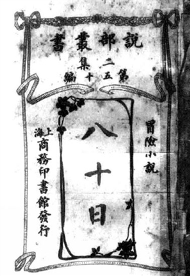 說部叢書
二集
第五十編
冒險小說
八十日
上海商務印書館發行